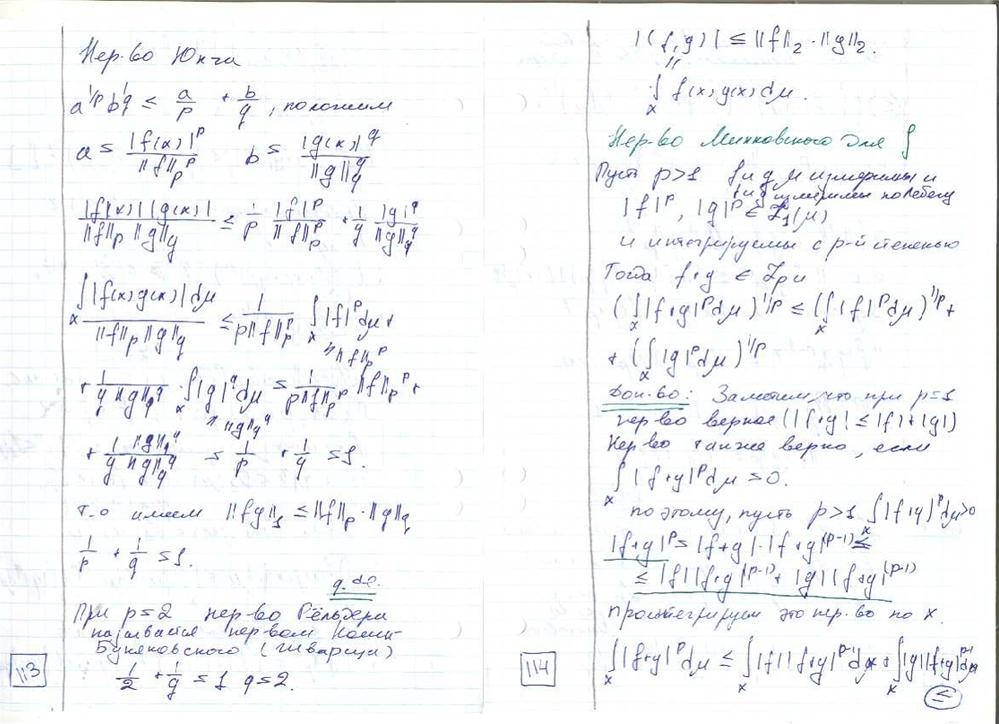 Нер-во Юнга
a^{1/p} b^{1/q} ≤ a/p + b/q, положим
a = |f(x)|^p / ||f||_p^p   b = |g(x)|^q / ||g||_q^q
|f(x)| |g(x)| / ||f||_p ||g||_q ≤ 1/p |f|^p / ||f||_p^p + 1/q |g|^q / ||g||_q^q
∫_X |f(x)g(x)| dμ / ||f||_p ||g||_q ≤ 1 / p||f||_p^p ∫_X |f|^p dμ +
" ||f||_p^p
+ 1 / q ||g||_q^q · ∫_X |g|^q dμ = 1 / p||f||_p^p ||f||_p^p +
" ||g||_q^q
+ 1/q ||g||_q^q / ||g||_q^q = 1/p + 1/q = 1.
Т.о имеем ||fg||_1 ≤ ||f||_p · ||g||_q
1/p + 1/q = 1.
При p=2 нер-во Гёльдера
называется нер-вом Коши-
Буняковского (Шварца)
1/2 + 1/q = 1 q = 2.
113
|(f,g)| ≤ ||f||_2 · ||g||_2.
"
∫_X f(x)g(x)dμ.
Нер-во Минковского для ∫
Пусть p>1 f и g μ измеримы и
f и g измерим по Лебегу
|f|^p, |g|^p ∈ L_1(μ)
и интегрируемы с p-й степенью
Тогда f+g ∈ L_p и
(∫_X |f+g|^p dμ)^{1/p} ≤ (∫_X |f|^p dμ)^{1/p} +
+ (∫_X |g|^p dμ)^{1/p}
Док-во: Заметим, что при p=1
нер-во верное (|f+g| ≤ |f|+|g|)
Нер-во также верно, если
∫_X |f+g|^p dμ = 0.
поэтому, пусть p>1 ∫_X |f+g|^p dμ>0
|f+g|^p = |f+g|·|f+g|^{(p-1)} ≤
≤ |f||f+g|^{(p-1)} + |g||f+g|^{(p-1)}
Проинтегрируем это нер-во по x.
∫_X |f+g|^p dμ ≤ ∫_X |f||f+g|^{p-1} dμ + ∫_X |g||f+g|^{p-1} dμ
≤
114